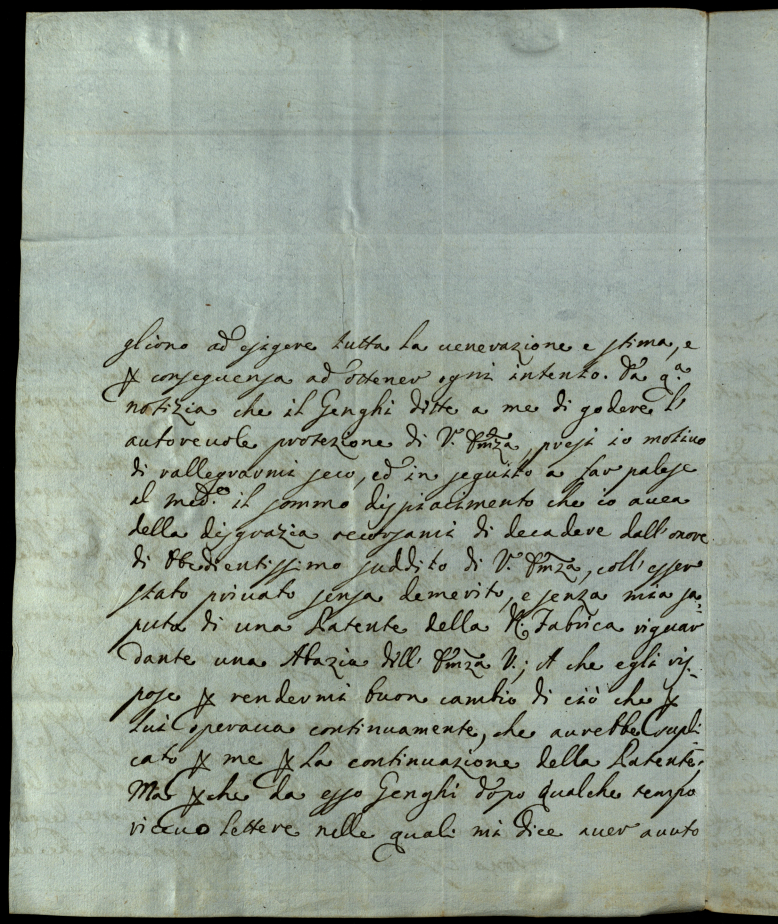 gliono ad esigere tutta la uenerazione e stima, e
ꝑ conseguenza ad ottener ogni intento. Da q.ª
notizia che il Genghi dette a me di godere l'
autoreuole protezione di V. Em̃za, presi io motiuo
di rallegrarmi seco, ed in seguito a far palese
al med.º il sommo dispiacimento che io auea
della disgrazia occorsami di decadere dall'onore
di obedientissimo suddito di V. Em̃za, coll'esser
stato priuato senza demerito, e senza mia sa¬
puta di una Patente della R. Fabrica riguar
dante una Abazia dell' Em̃za V.; A che egli ris¬
pose ꝑ rendermi buon cambio di ciò che ꝑ
lui operaua continuamente, che aurebbe supli
cato ꝑ me ꝑ la continuazione della Patente.
Ma ꝑche da esso Genghi dopo qualche tempo
riceuo lettere nelle quali mi dice auer auuto